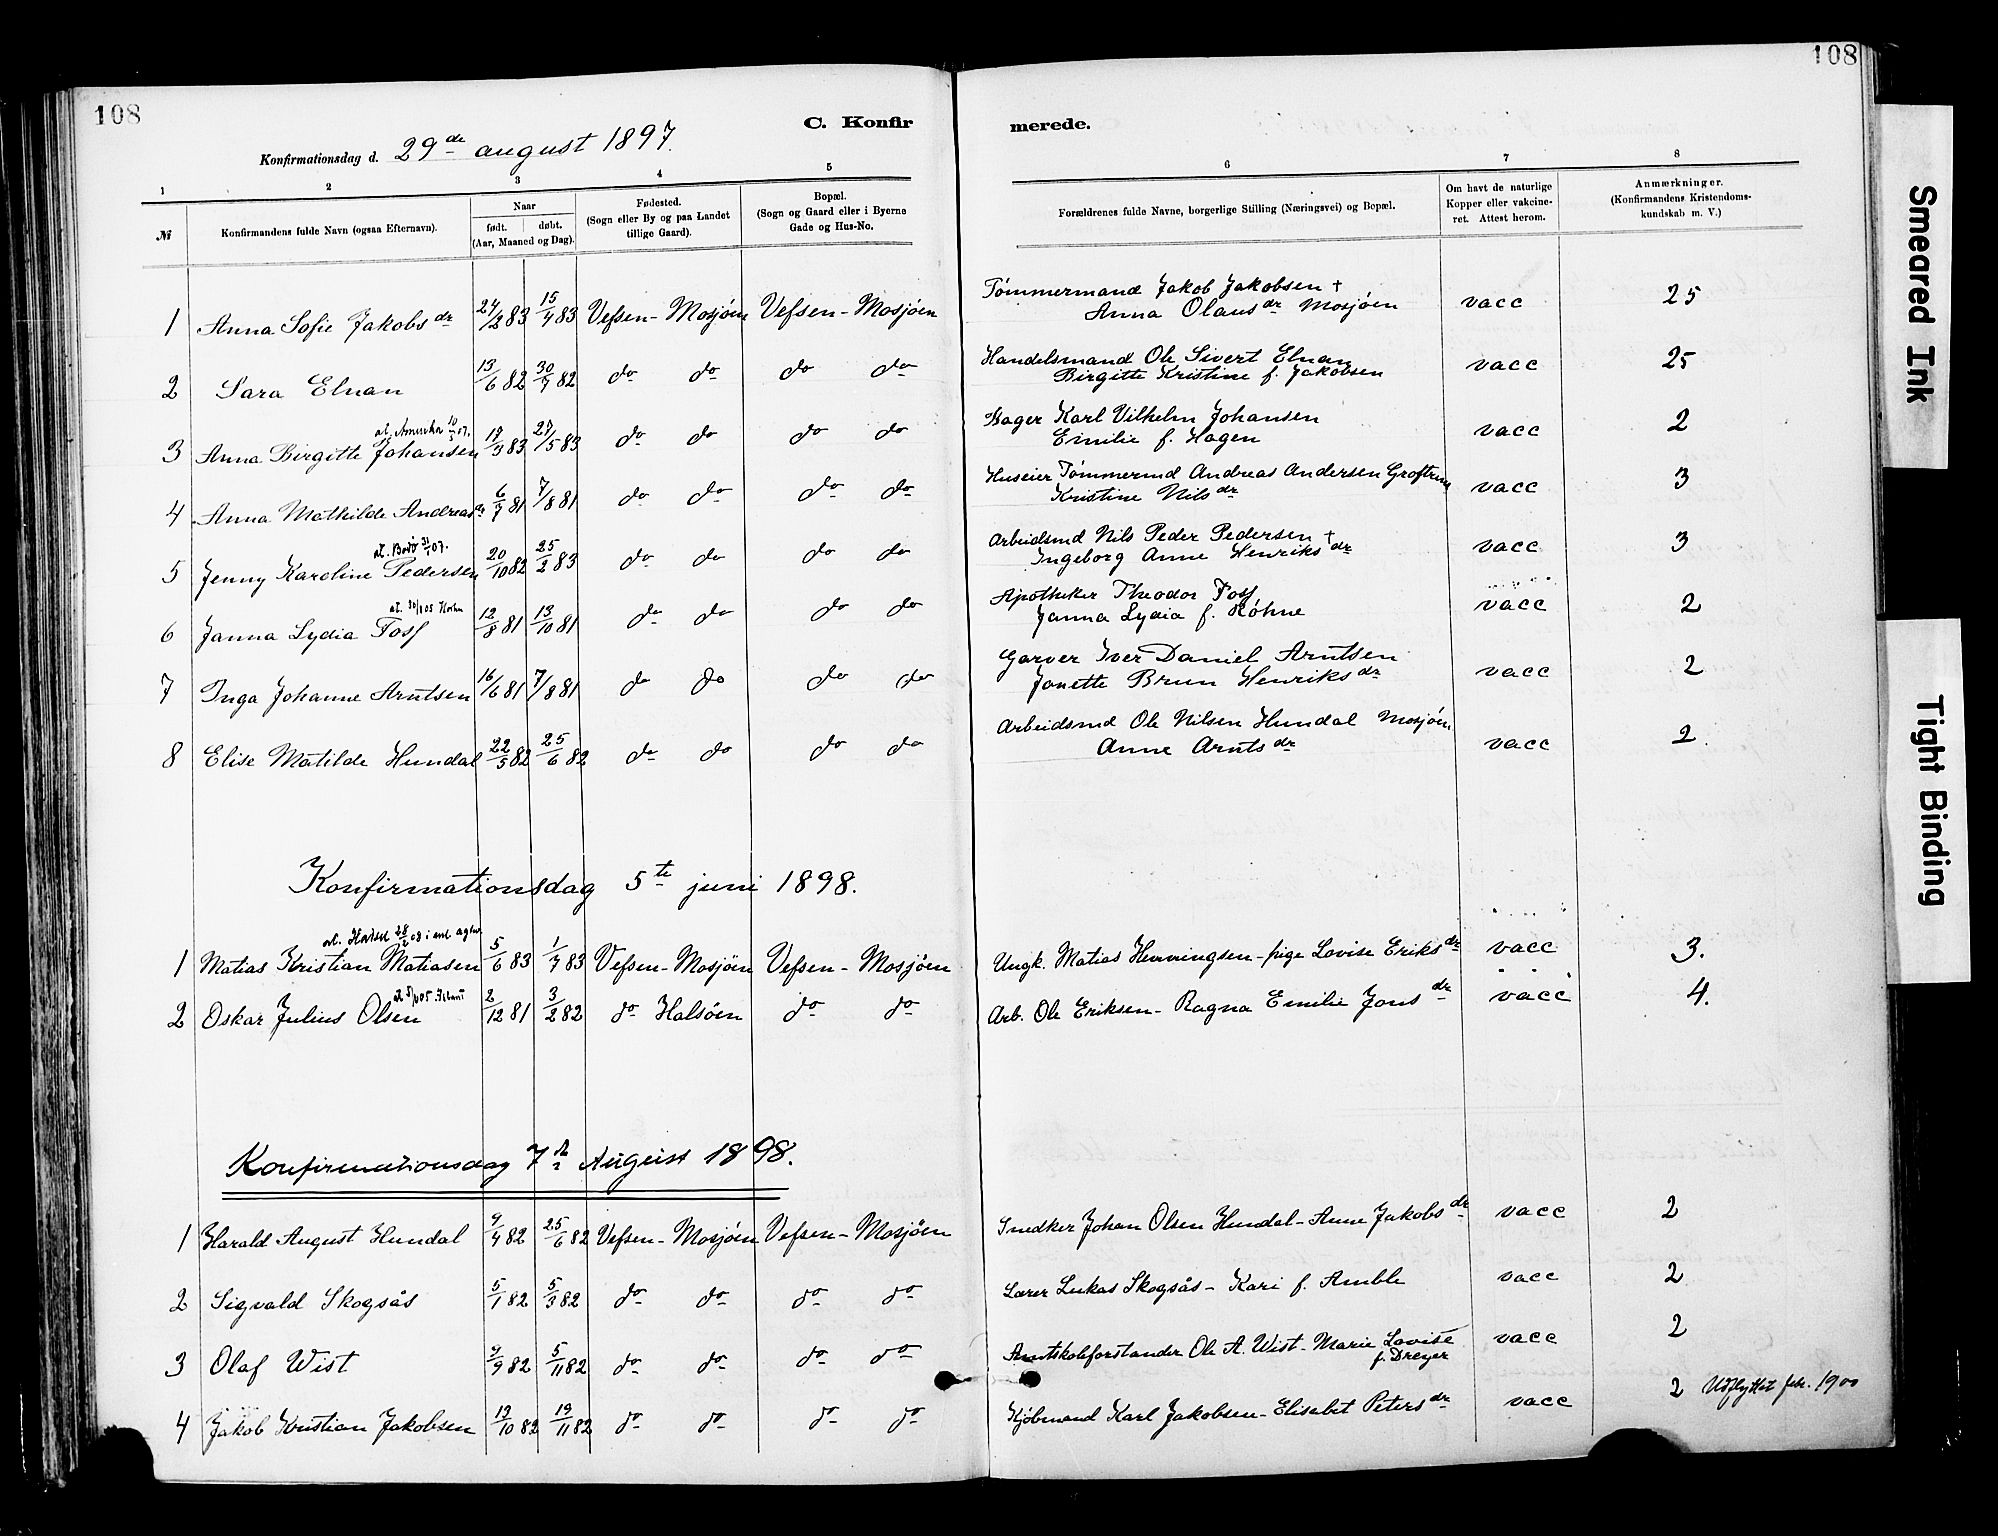 108
108
C. Konfirmerede.
Konfirmationsdag d. 29de august 1897.
1 2 3 4 5 6 7 8
№ Konfirmandens fulde Navn (ogsaa Efternavn). Naar født. døbt. (Aar, Maaned og Dag). Fødested. (Sogn eller By og paa Landet tillige Gaard). Bopæl. (Sogn og Gaard eller i Byerne Gade og Hus-No. Forældrenes fulde Navne, borgerlige Stilling (Næringsvei) og Bopæl. Om havt de naturlige Kopper eller vakcineret. Attest herom. Anmærkninger. (Konfirmandens Kristendomskundskab m. V.)
1 Anna Sofie Jakobsdr 24/2 83 15/4 83 Vefsen - Mosjøen Vefsen - Mosjøen Tømmermand Jakob Jakobsen + vacc 25
Anna Olausdr Mosjøen
2 Sara Elnan 13/6 82 30/7 82 do do do do Handelsmand Ole Sivert Elnan vacc 25
Birgitte Kristine f. Jakobsen
at. Amerika 10/3 07.
3 Anna Birgitte Johansen 18/3 83 27/5 83 do do do do Bager Karl Vilhelm Johansen vacc 2
Emilie f. Hagen
4 Anna Mathilde Andreasdr 6/7 81 7/8 81 do do do do Huseier Tømmermd Andreas Andersen vacc 3
Kristine Nilsdr
at. Bodø 31/1 07.
5 Jenny Karoline Pedersen 20/10 82 25/2 83 do do do do Arbeidsmd Nils Peder Pedersen + vacc 3
Ingeborg Anne Henriksdr
at. 30/1 05
6 Janna Lydia Foss 12/8 81 13/10 81 do do do do Apotheker Theodor Foss vacc 2
Janna Lydia f. Køhne
7 Inga Johanne Arntsen 16/6 81 7/8 81 do do do do Garver Iver Daniel Arntsen vacc 2
Jonette Brun Henriksdr
8 Elise Matilde Hundal 22/5 82 25/6 82 do do do do Arbeidsmd Ole Nilsen Hundal Mosjøen vacc 2
Anne Arntsdr
Konfirmationsdag 5te juni 1898.
at. Hadsel 28/2 08
1 Matias Kristian Matiasen 5/6 83 1/7 83 Vefsen - Mosjøen Vefsen - Mosjøen Ungk. Matias Henningsen - pige Lovise Eriksdr vacc 3.
2 Oskar Julius Olsen 2/12 81 3/2 82 do Halsøen do do Arb. Ole Eriksen - Ragna Emilie Jonsdr vacc 4.
Konfirmationsdag 7de August 1898.
1 Harald August Hundal 9/4 82 25/6 82 Vefsen - Mosjøen Vefsen - Mosjøen Snedker Johan Olsen Hundal - Anne Jakobsdr vacc 2
2 Sigvald Skogsås 5/1 82 5/3 82 do do do do Lærer Lukas Skogsås - Kari f. Amble vacc 2
3 Olaf Wist 9/9 82 5/11 82 do do do do Amtskoleforstander Ole A. Wist - Marie Lovise f. Dreyer vacc 2
4 Jakob Kristian Jakobsen 13/10 82 19/11 82 do do do do Kjøbmand Karl Jakobsen - Elisabet Petersdr vacc 2 Udflyttet febr. 1900
Smeared Ink
Tight Binding